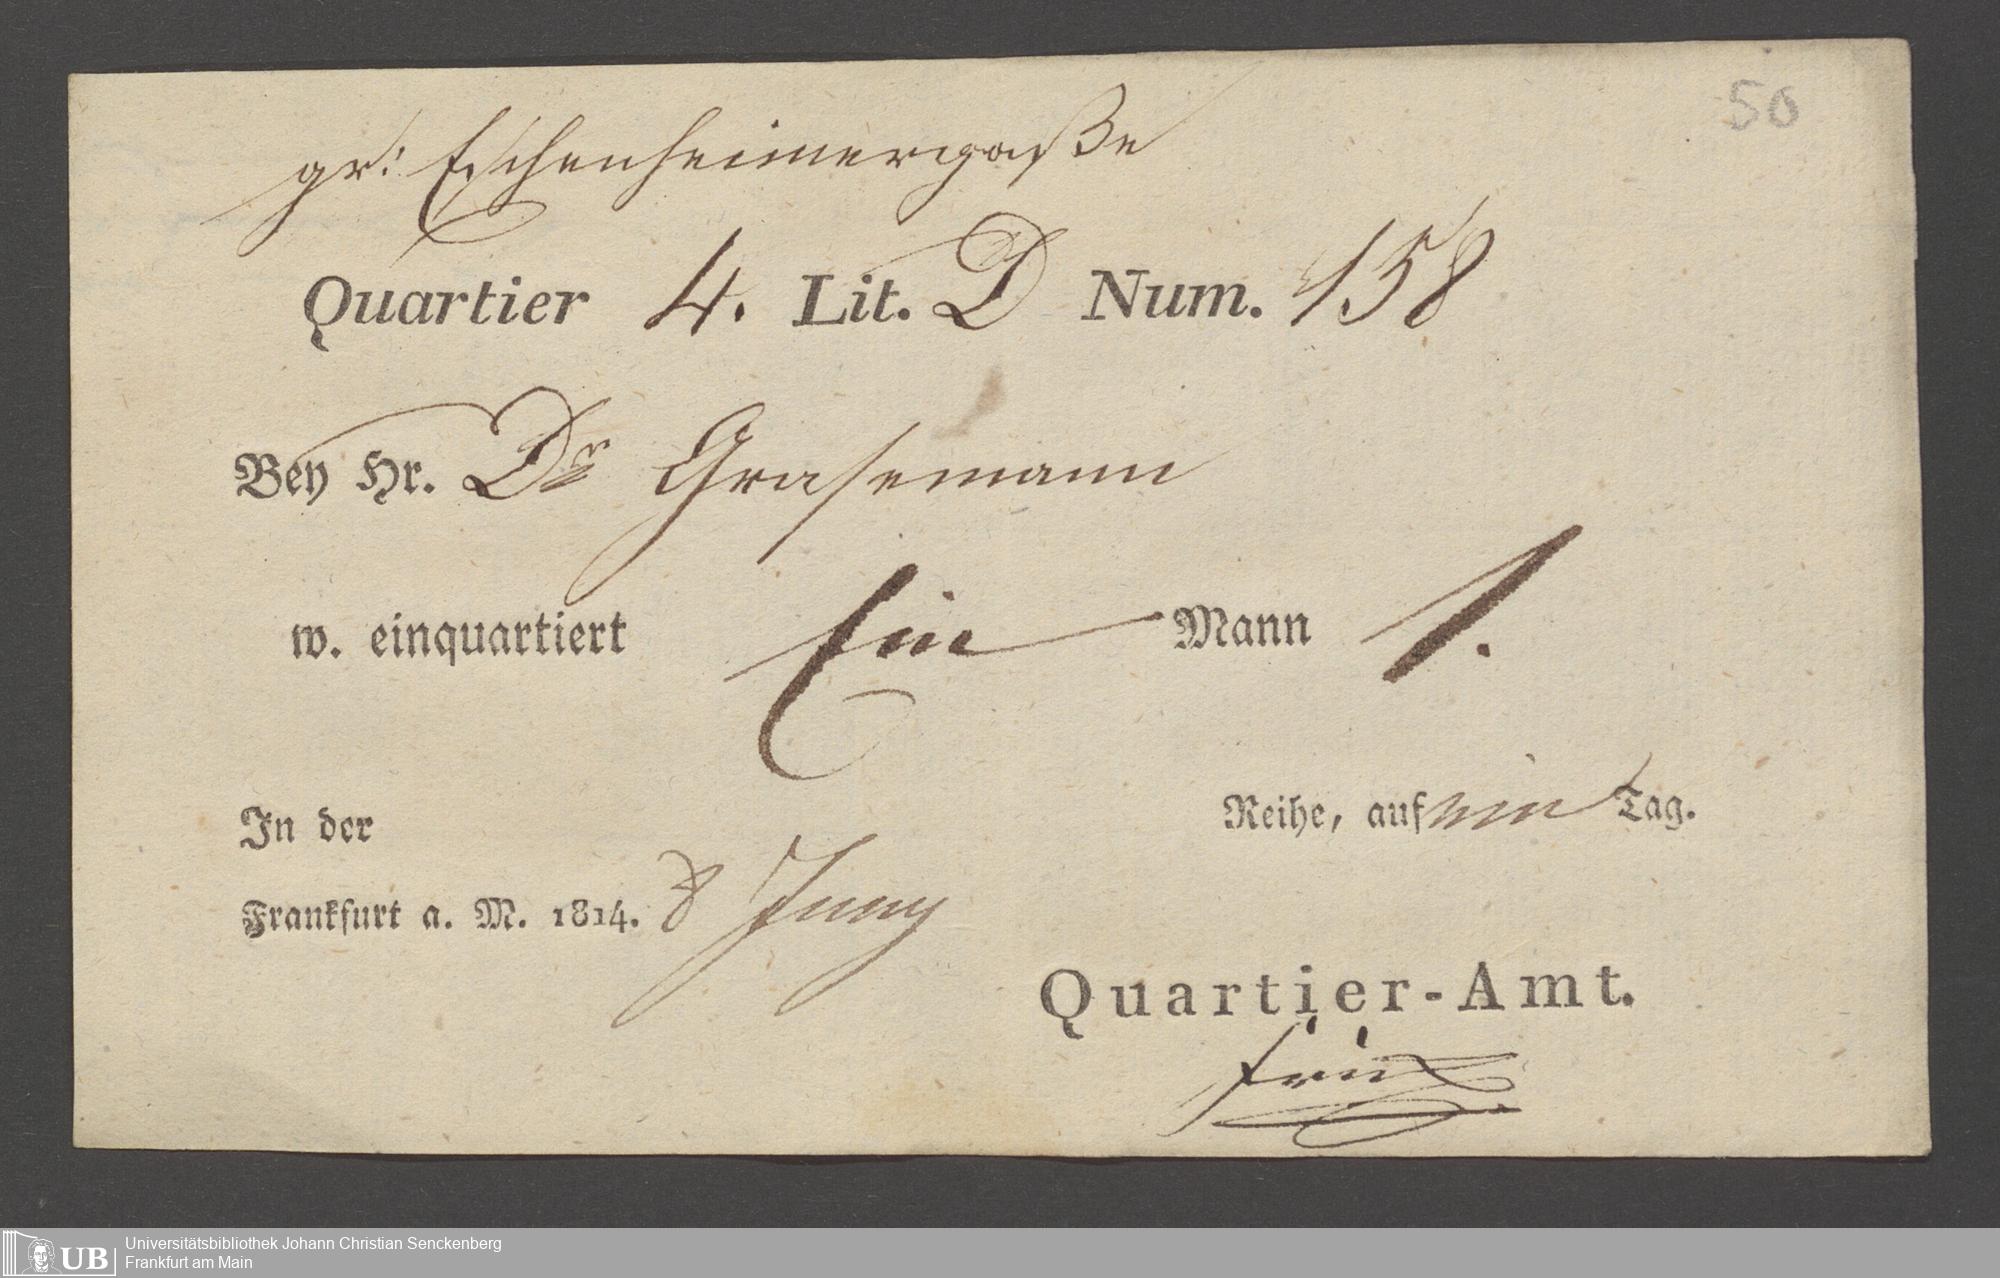 50
gr: Eschenheimergaße
Quartier 4. Lit. D Num. 158
Bey Hr. Dr Grasemann
w. einquartiert Ein Mann 1.
In der Reihe, auf ein Tag.
Frankfurt a. M. 1814. 8 Juny
Quartier-Amt.
UB Universitätsbibliothek Johann Christian Senckenberg
Frankfurt am Main